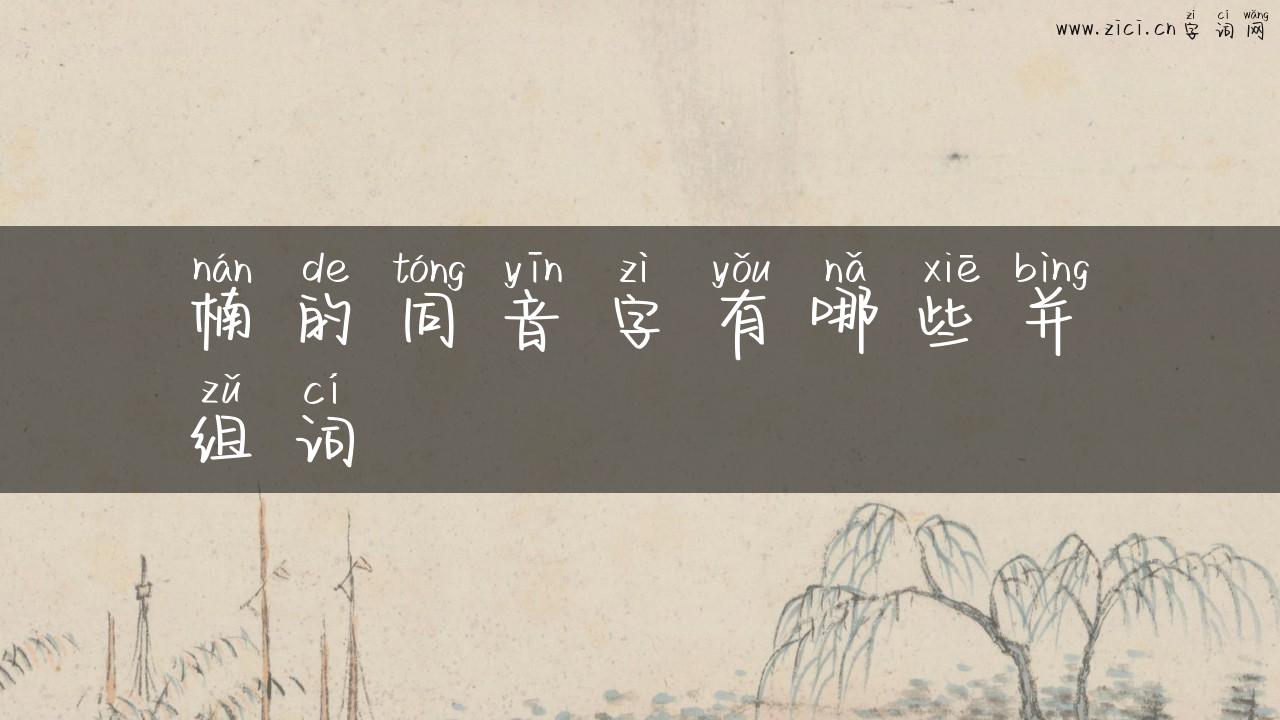 zì cí wǎng
www.zici.cn 字词网
nán de tóng yīn zì yǒu nǎ xiē bìng
楠的同音字有哪些并
zǔ cí
组词